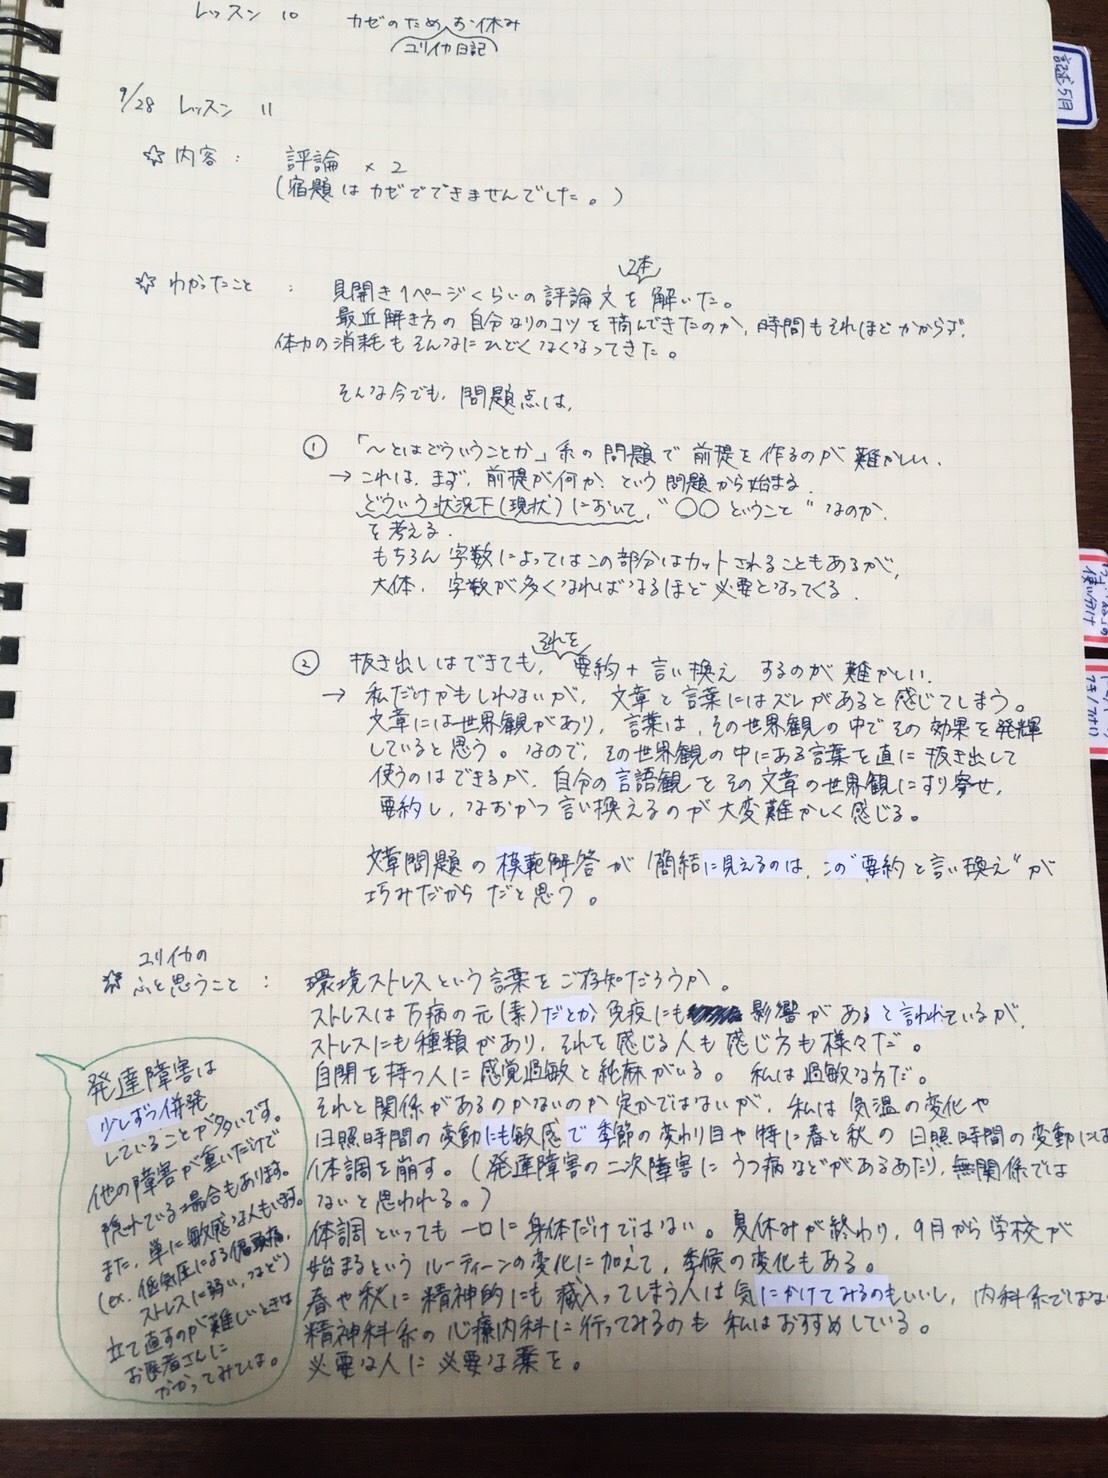 レッスン 10 カゼのためお休み
ユリイカ日記
9/28 レッスン 11
☆ 内容： 評論 × 2
（宿題はカゼでできませんでした。）
☆ わかったこと ： 見開き1ページくらいの評論文を2本解いた。
最近解き方の自分なりのコツを掴んできたのか、時間もそれほどかからず、
体力の消耗もそんなにひどくなくなってきた。
そんな今でも、問題点は、
① 「〜とはどういうことか」系の問題で前提を作るのが難かしい。
→ これは、まず、前提が何か、という問題から始まる。
どういう状況下（現状）において、“〇〇ということ”なのか、
を考える。
もちろん字数によってはこの部分はカットされることもあるが、
大体、字数が多くなればなるほど必要となってくる。
② 抜き出しはできても、それを要約＋言い換えするのが難かしい。
→ 私だけかもしれないが、文章と言葉にはズレがあると感じてしまう。
文章には世界観があり、言葉は、その世界観の中でその効果を発輝
していると思う。なので、その世界観の中にある言葉を直に抜き出して
使うのはできるが、自分の言語観をその文章の世界観にすり寄せ、
要約し、なおかつ言い換えるのが大変難かしく感じる。
文章問題の模範解答が簡結に見えるのは、この“要約と言い換え”が
巧みだからだと思う。
☆ ユリイカのふと思うこと ： 環境ストレスという言葉をご存知だろうか。
ストレスは万病の元（素）だとか免疫にも影響があると言われているが、
ストレスにも種類があり、それを感じる人も感じ方も様々だ。
自閉を持つ人に感覚過敏と鈍麻がいる。私は過敏な方だ。
それと関係があるのかないのか定かではないが、私は気温の変化や
日照時間の変動にも敏感で季節の変わり目や特に春と秋の日照時間の変動には
体調を崩す。（発達障害の二次障害にうつ病などがあるあたり、無関係では
ないと思われる。）
体調といっても一口に身体だけではない。夏休みが終わり、9月から学校が
始まるというルーティーンの変化に加えて、季候の変化もある。
春や秋に精神的にも滅入ってしまう人は気にかけてみるのもいいし、内科系ではない
精神科系の心療内科に行ってみるのも私はおすすめしている。
必要な人に必要な薬を。
発達障害は
少しずつ併発
していることが多いです。
他の障害が重いだけで
隠れている場合もあります。
また、単に敏感な人もいます。
（ex. 低気圧による偏頭痛、
ストレスに弱い、など）
立て直すのが難しいときは
お医者さんに
かかってみては。